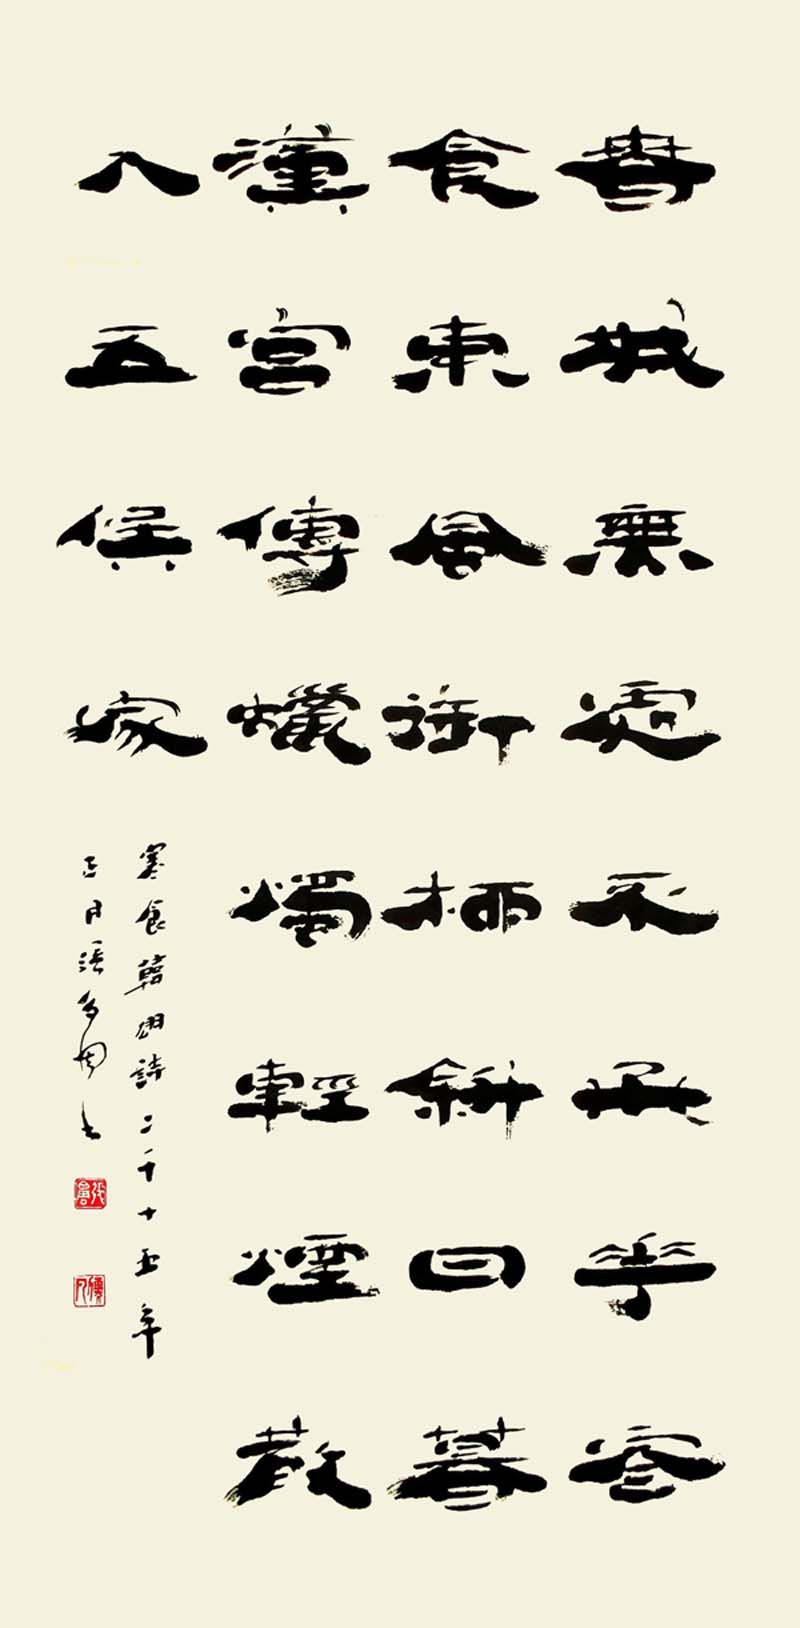 春城無處不飛花寒
食東風御柳斜日暮
漢宮傳蠟燭輕煙散
入五侯家
寒食韓翃詩二千十五年
正月